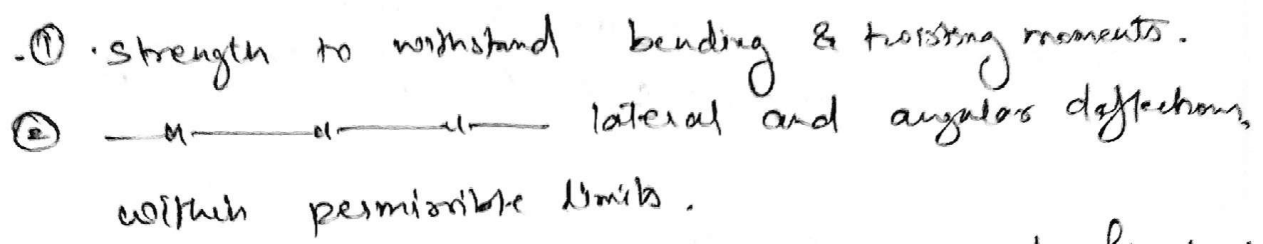 ① . strength to withstand bending & twisting moments.
② —"——"——"—— lateral and angular deflections,
within permissible limits.